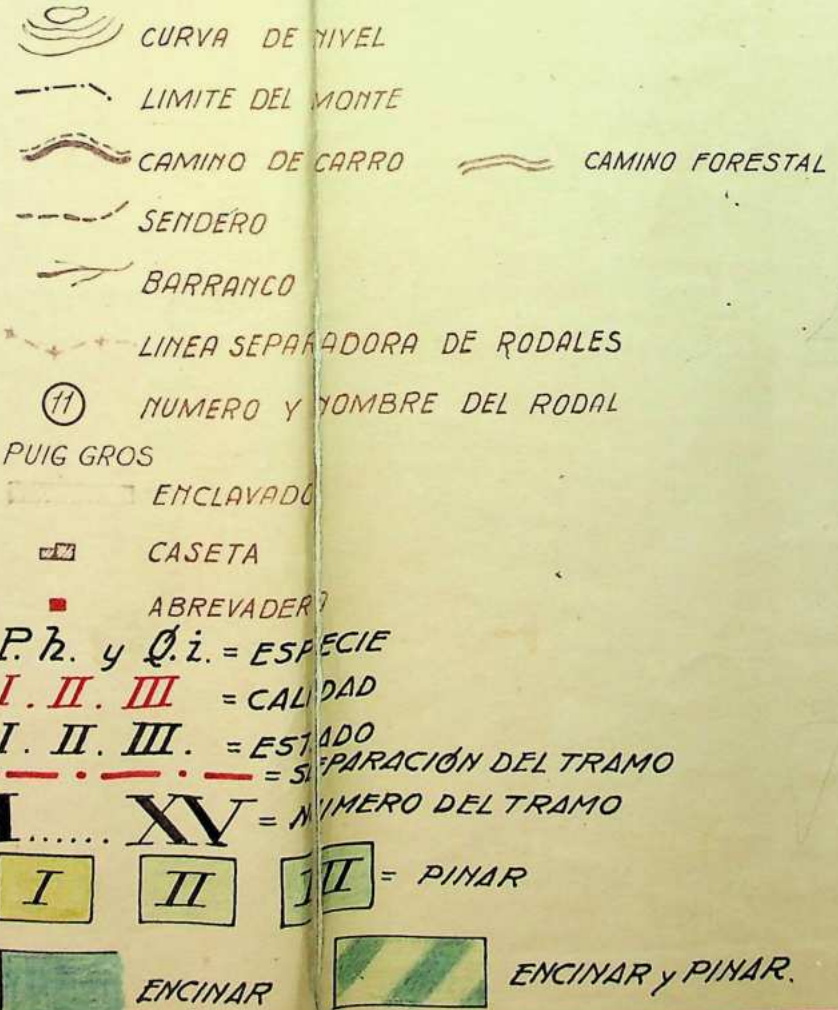 CURVA DE NIVEL
LIMITE DEL MONTE
CAMINO DE CARRO CAMINO FORESTAL
SENDERO
BARRANCO
LINEA SEPARADORA DE RODALES
11 NUMERO Y NOMBRE DEL RODAL
PUIG GROS
ENCLAVADO
CASETA
ABREVADERO
P.h. y Q.i. = ESPECIE
I. II. III = CALIDAD
I. II. III. = ESTADO
= SEPARACIÓN DEL TRAMO
I...... XV = NUMERO DEL TRAMO
I II III = PINAR
ENCINAR ENCINAR y PINAR.